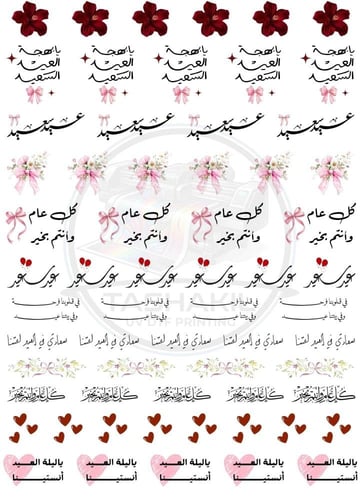 يا بهجة يا بهجة يا بهجة يا بهجة يا بهجة
العيد العيد العيد العيد العيد
السعيد السعيد السعيد السعيد السعيد
عيد سعيد عيد سعيد عيد سعيد عيد سعيد
كل عام كل عام كل عام كل عام
وانتم بخير وانتم بخير وانتم بخير وانتم بخير
عيد سعيد عيد سعيد عيد سعيد عيد سعيد عيد سعيد عيد سعيد
في قلوبنا فرحة في قلوبنا فرحة في قلوبنا فرحة في قلوبنا فرحة
وفي بيتنا عيد وفي بيتنا عيد وفي بيتنا عيد وفي بيتنا عيد
UV DTF PRINTING
كل عام وأنتم بخير كل عام وأنتم بخير كل عام وأنتم بخير كل عام وأنتم بخير كل عام وأنتم بخير
ياليلة العيد ياليلة العيد ياليلة العيد ياليلة العيد ياليلة العيد
أنستينا أنستينا أنستينا أنستينا أنستينا